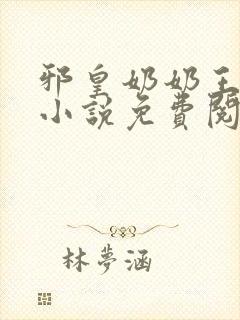 邪皇奶奶王
小說免費閱
林夢涵